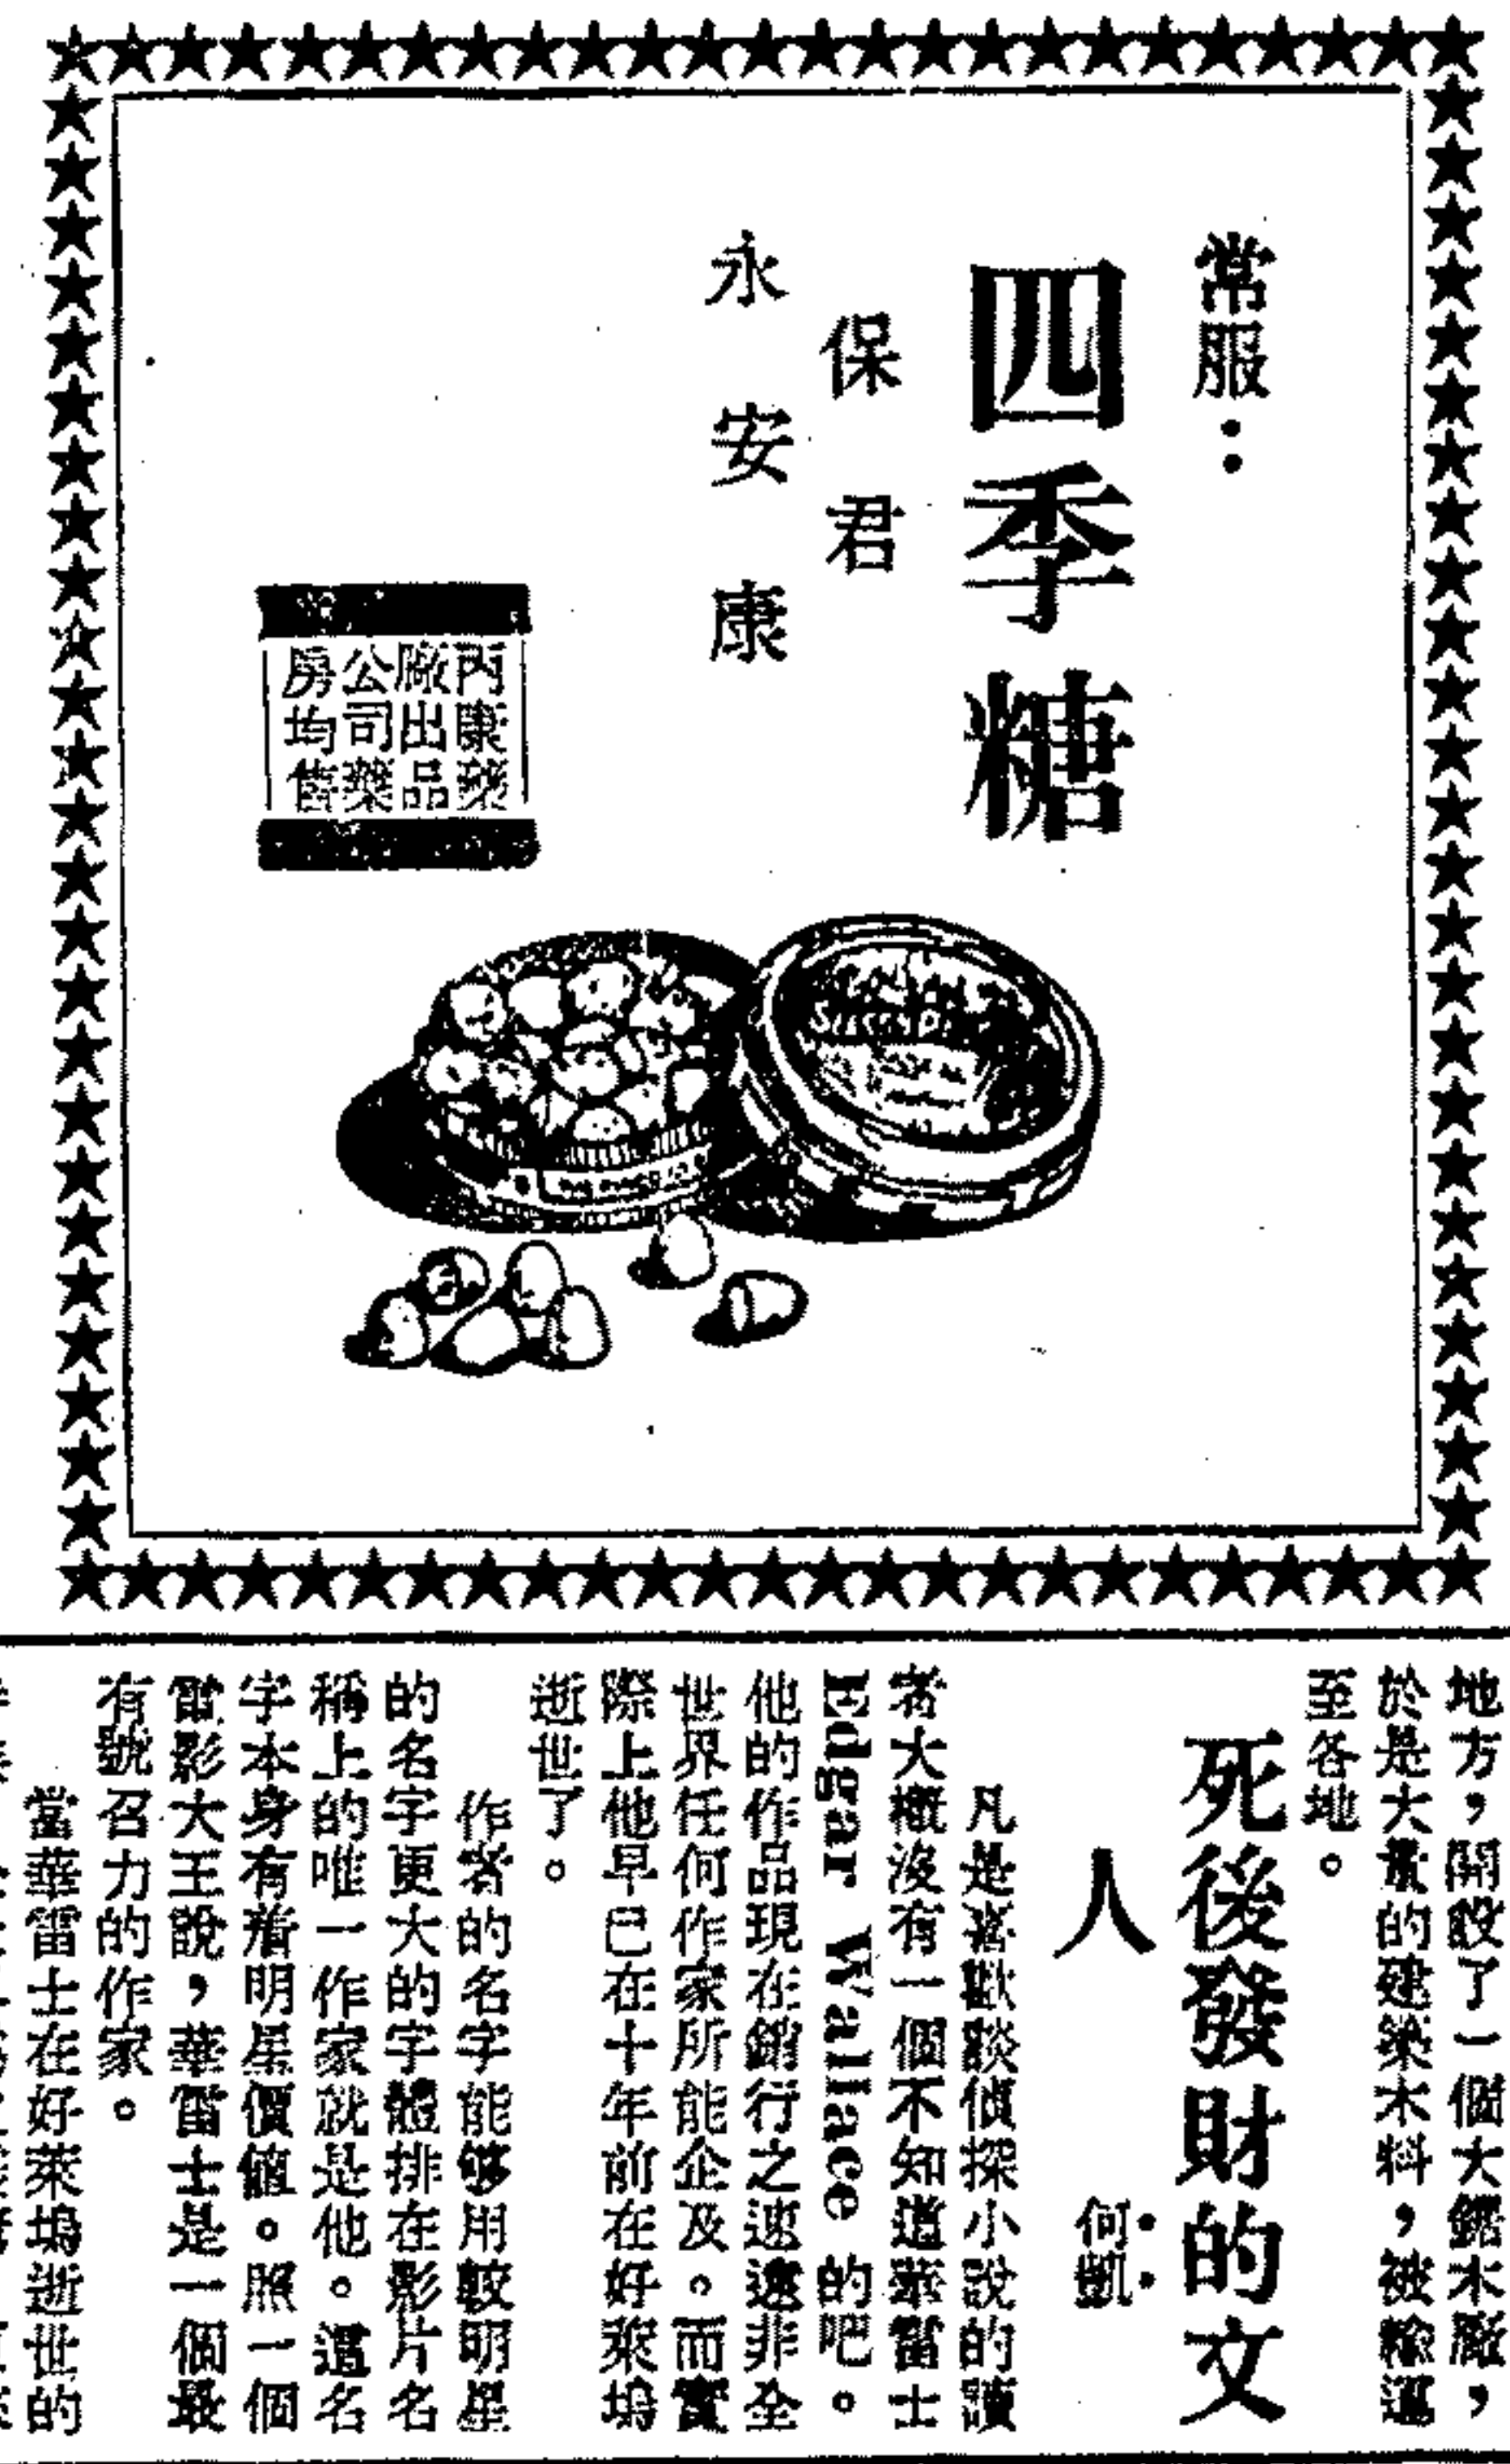 常服：
四季糖
保君
永安康
丙康藥
廠出品
公司藥
房均售
地方，開設了一個大鋸木廠，
於是大量的建築木料，被輸運
至各地。
死後發財的文
人
何凱
凡是喜歡談偵探小說的讀
者大概沒有一個不知道華雷士
Edgar Wallace 的吧。
他的作品現在銷行之速遠非全
世界任何作家所能企及。而實
際上他早已在十年前在好萊塢
逝世了。
作者的名字能够用較明星
的名字更大的字體排在影片名
稱上的唯一作家就是他。這名
字本身有着明星價值。照一個
電影大王說，華雷士是一個最
有號召力的作家。
當華雷士在好萊塢逝世的